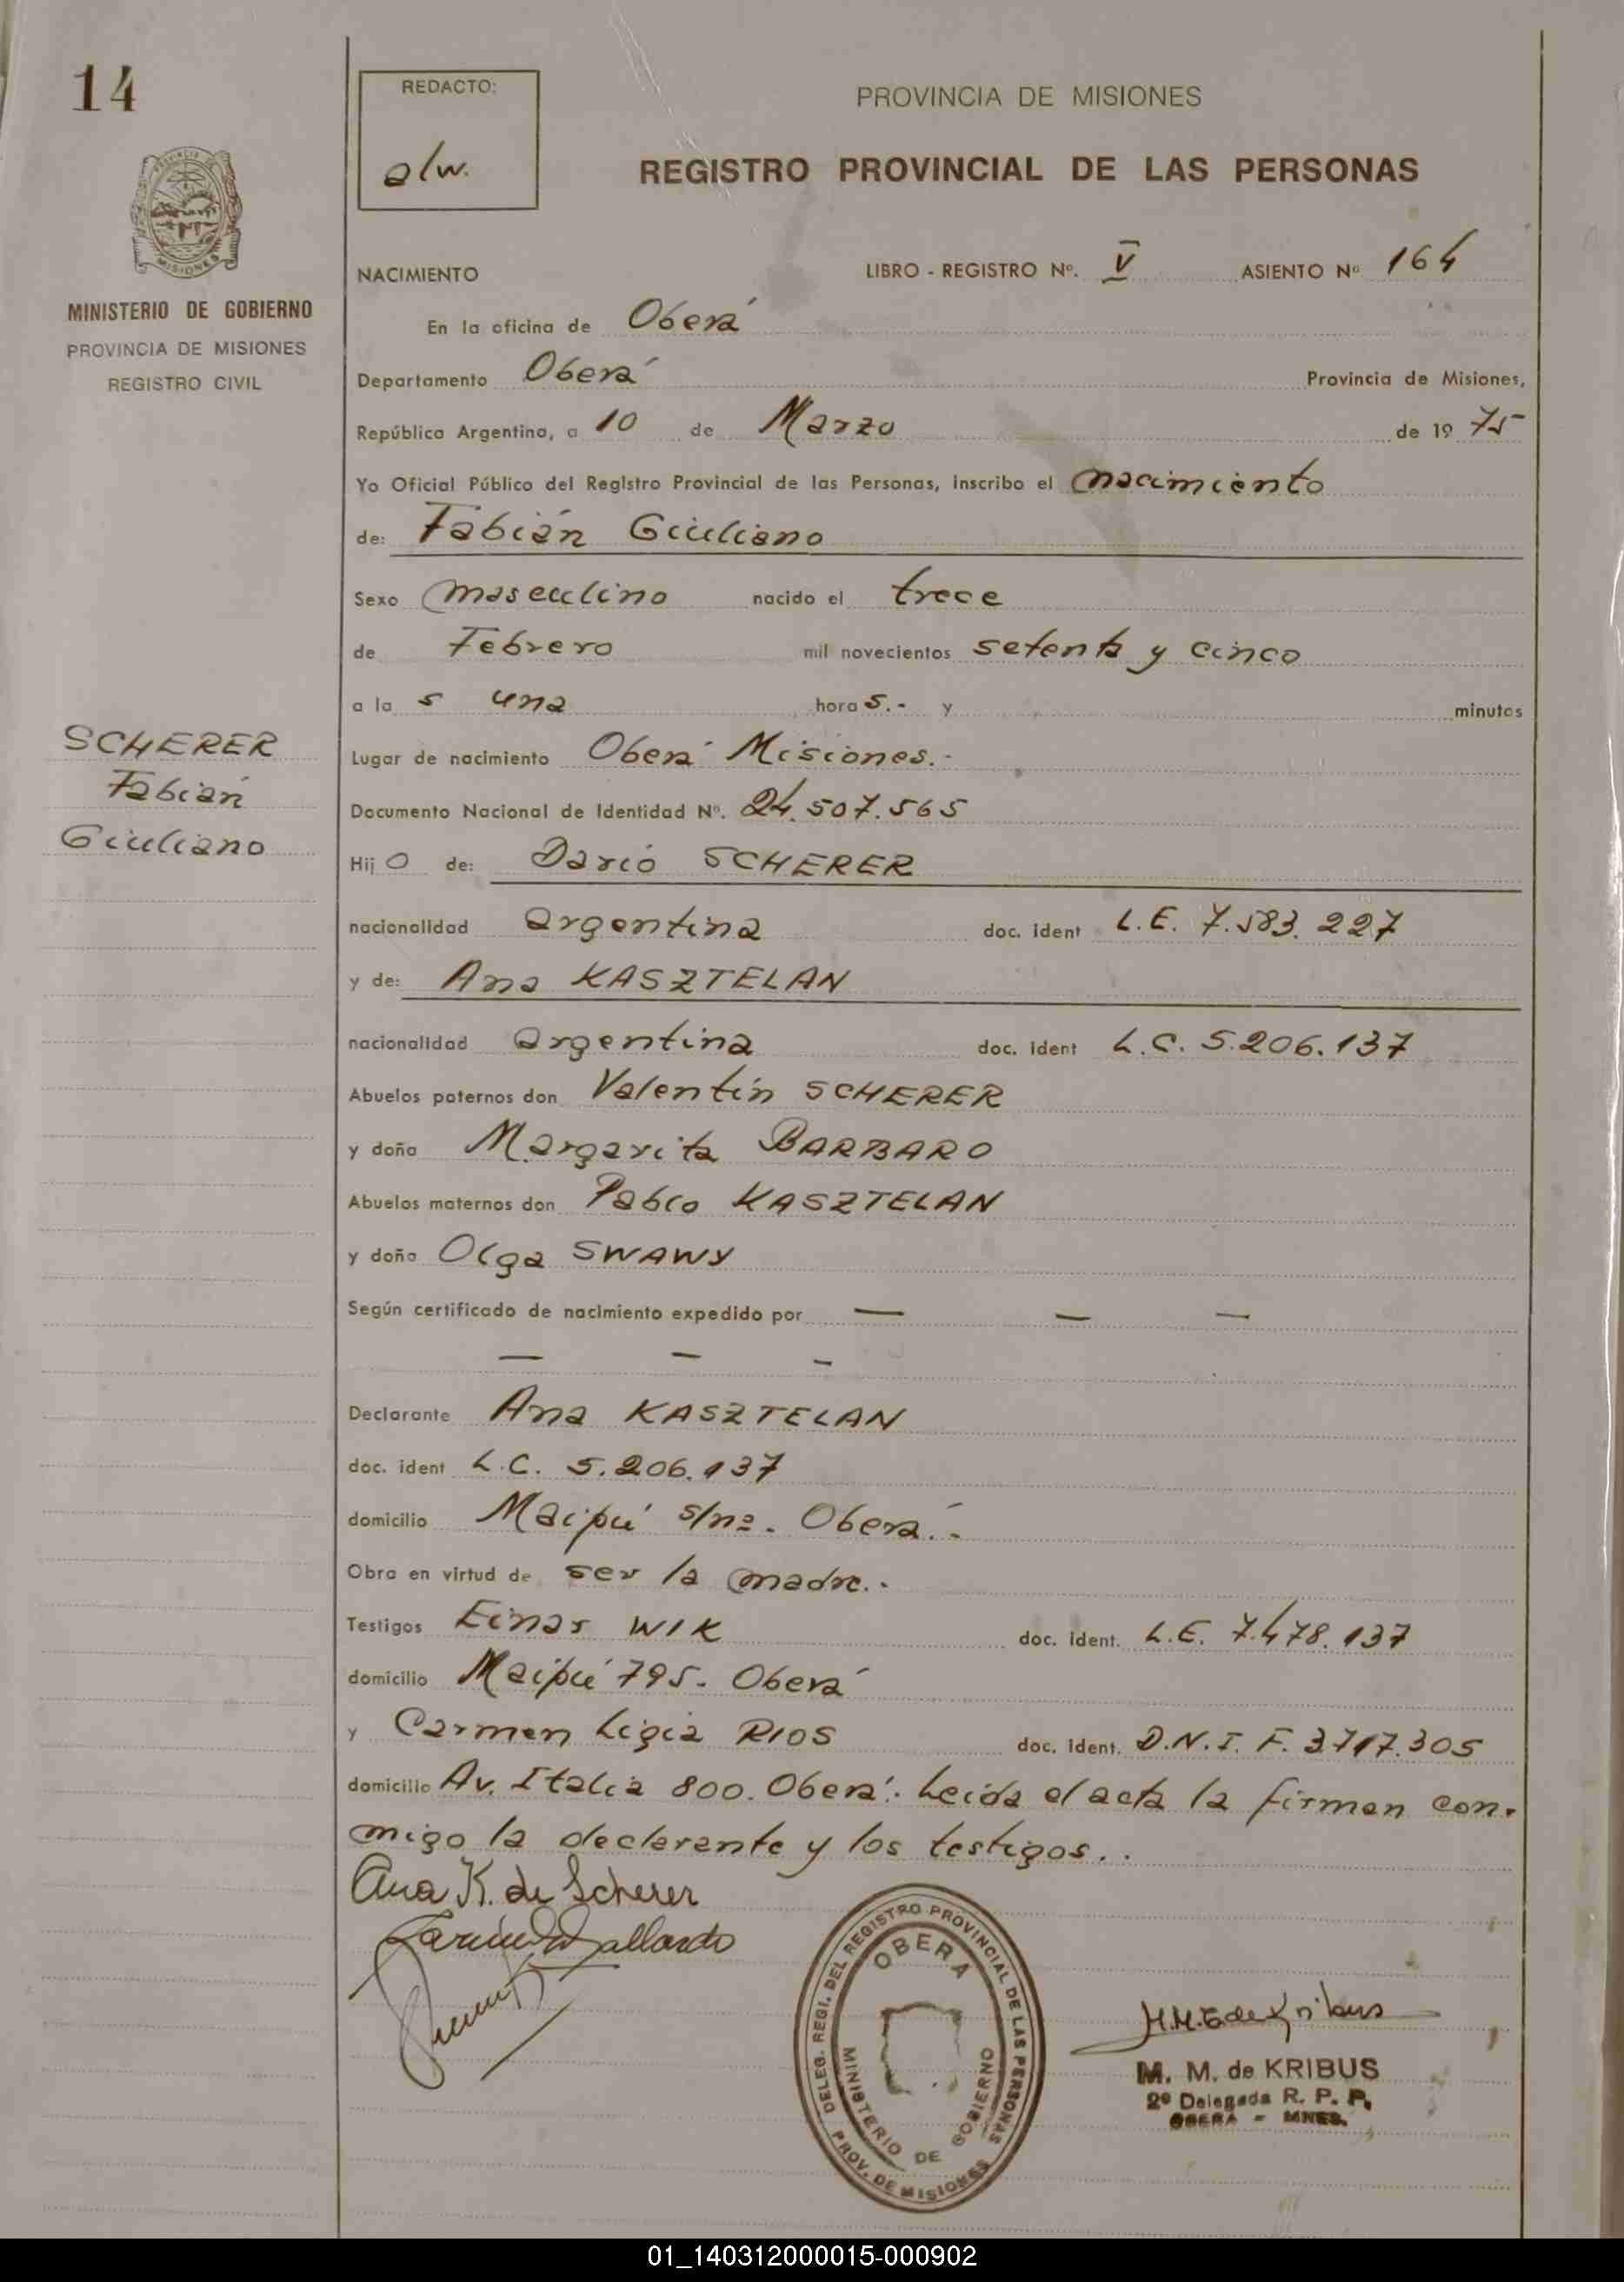 14
REDACTO:
a/w.
PROVINCIA DE MISIONES
REGISTRO PROVINCIAL DE LAS PERSONAS
MISIONES
MINISTERIO DE GOBIERNO
PROVINCIA DE MISIONES
REGISTRO CIVIL
NACIMIENTO LIBRO - REGISTRO Nº. V ASIENTO Nº 164
En la oficina de Oberá
Departamento Oberá Provincia de Misiones,
República Argentina, a 10 de Marzo de 19 75
Yo Oficial Público del Registro Provincial de las Personas, inscribo el nacimiento
de: Fabián Giuliano
Sexo masculino nacido el trece
de Febrero mil novecientos setenta y cinco
a la s una hora s.- y minutos
SCHERER
Fabián
Giuliano
Lugar de nacimiento Oberá Misiones.-
Documento Nacional de Identidad Nº. 24.507.565
Hij o de: Darío SCHERER
nacionalidad argentina doc. ident L.E. 7.583.227
y de: Ana KASZTELAN
nacionalidad argentina doc. ident L.C. 5.206.137
Abuelos paternos don Valentín SCHERER
y doña Margarita BARBARO
Abuelos maternos don Pablo KASZTELAN
y doña Olga SWAWY
Según certificado de nacimiento expedido por — — —
— — —
Declarante Ana KASZTELAN
doc. ident L.C. 5.206.137
domicilio Maipú s/nº. Oberá.-
Obra en virtud de ser la madre.-
Testigos Einar WIK doc. ident. L.E. 7.478.137
domicilio Maipú 795. Oberá
y Carmen Ligia RIOS doc. ident. D.N.I. F. 3.717.305
domicilio Av. Italia 800. Oberá.- Leída el acta la firman con-
migo la declarante y los testigos..
Ana K. de Scherer
DELEG. REGI. DEL REGISTRO PROVINCIAL DE LAS PERSONAS
OBERA
MINISTERIO DE GOBIERNO
PROV. DE MISIONES
M. M. de KRIBUS
2ª Delegada R. P. P.
OBERA - MNES.
01_140312000015-000902